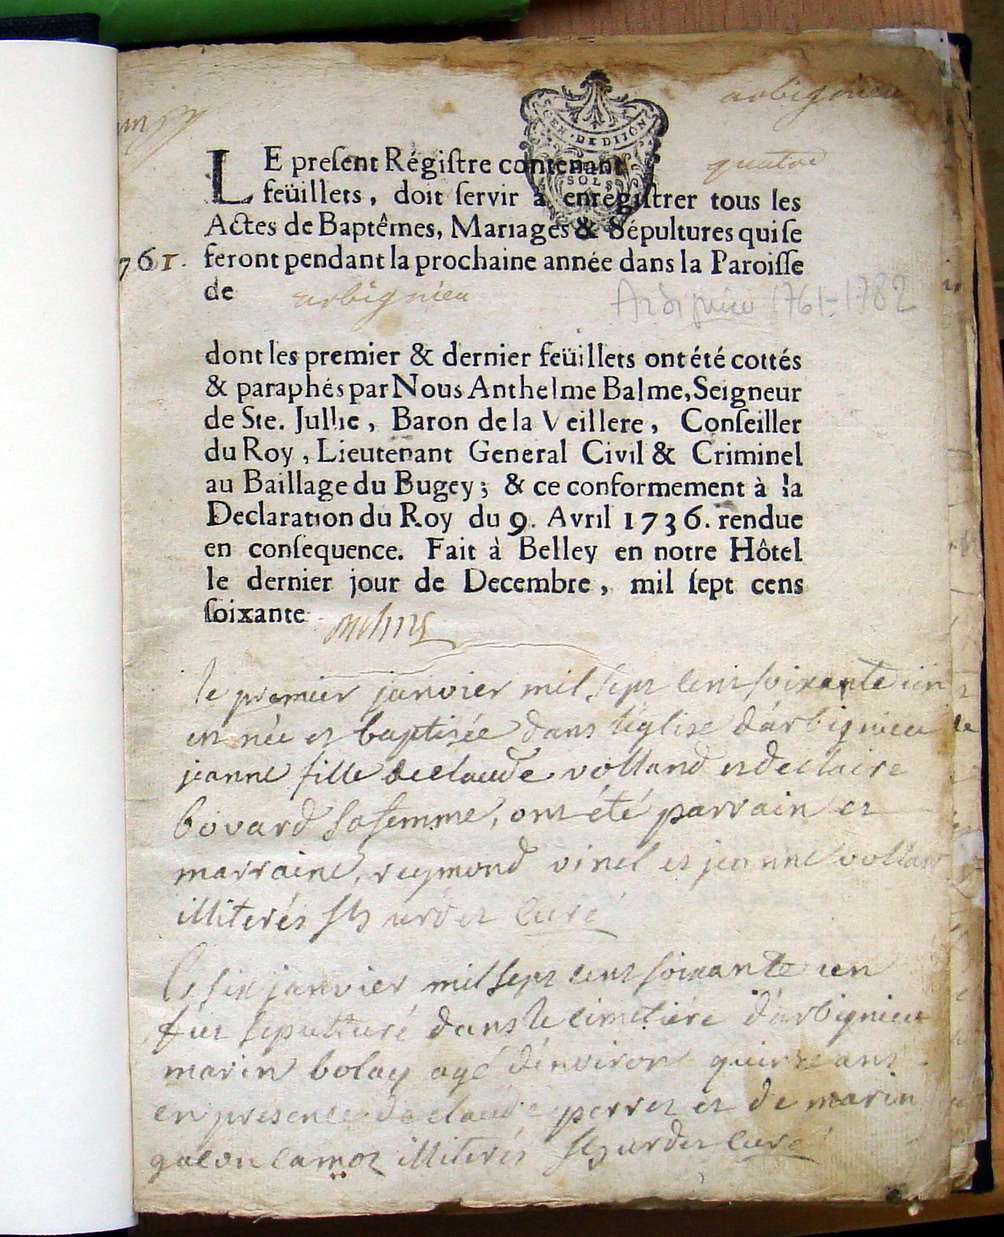 arbignieu
GEN. DE DIJON
SOLS
LE preſent Régiſtre contenant quatre
feüillets, doit ſervir à enregiſtrer tous les
Actes de Baptêmes, Mariages & Sépultures qui ſe
761. feront pendant la prochaine année dans la Paroiſſe
de arbignieu
1761-1782
dont les premier & dernier feüillets ont été cottés
& paraphés par Nous Anthelme Balme, Seigneur
de Ste. Jullie, Baron de la Veillere, Conſeiller
du Roy, Lieutenant General Civil & Criminel
au Baillage du Bugey; & ce conformement à la
Declaration du Roy du 9. Avril 1736. rendue
en conſequence. Fait à Belley en notre Hôtel
le dernier jour de Decembre, mil ſept cens
ſoixante
le premier janvier mil sept cent soixante un
est née et baptisée dans l'église d'arbignieu
jeanne fille de claude volland et de claire
bovard sa femme, ont été parrain et
marraine, reymond vinel et jeanne volland
illiterés curé
le six janvier mil sept cent soixante un
fut sepulturé dans le cimetiére d'arbignieu
marin bolay agé d'environ quinze ans
en presence de claude perret et de marin
illiterés curé